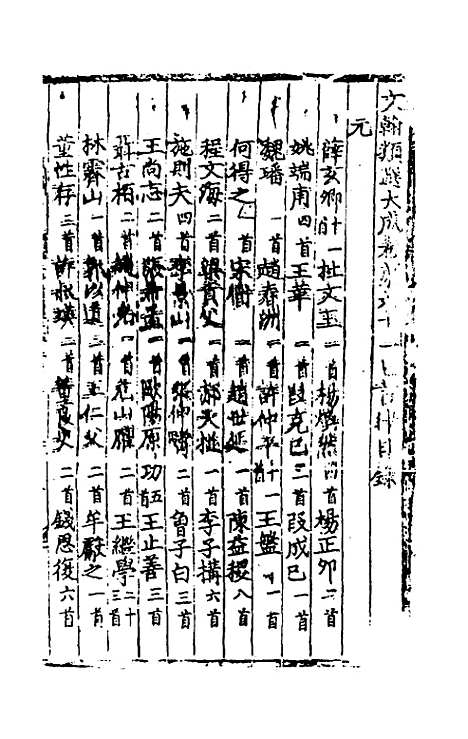 文翰類選大成卷 十一七言律目錄
元
薛玄卿 一 杜文玉 一首 楊 然 首 楊正夘 二首
姚端甫 四首 王華 一首 段克已 三首 段成巳 一首
魏璠 一首 趙春洲 一首 許仲平 十一首 王盤 一首
何得之 一首 宋衜 一首 趙世延 一首 陳益稷 八首
程文海 二首 梁貢父 一首 郝天挺 一首 李子構 六首
施則夫 四首 李景山 一首 張仲疇 二首 魯子白 三首
王尚志 二首 張希孟 一首 歐陽原功 五首 王止善 三首
聶古栢 二首 首 范山臞 二首 王繼學 二十三首
林霽山 一首 郭以道 三首 王仁父 二首 牟獻之 一首
董性存 三首 二首 二首 錢思復 六首